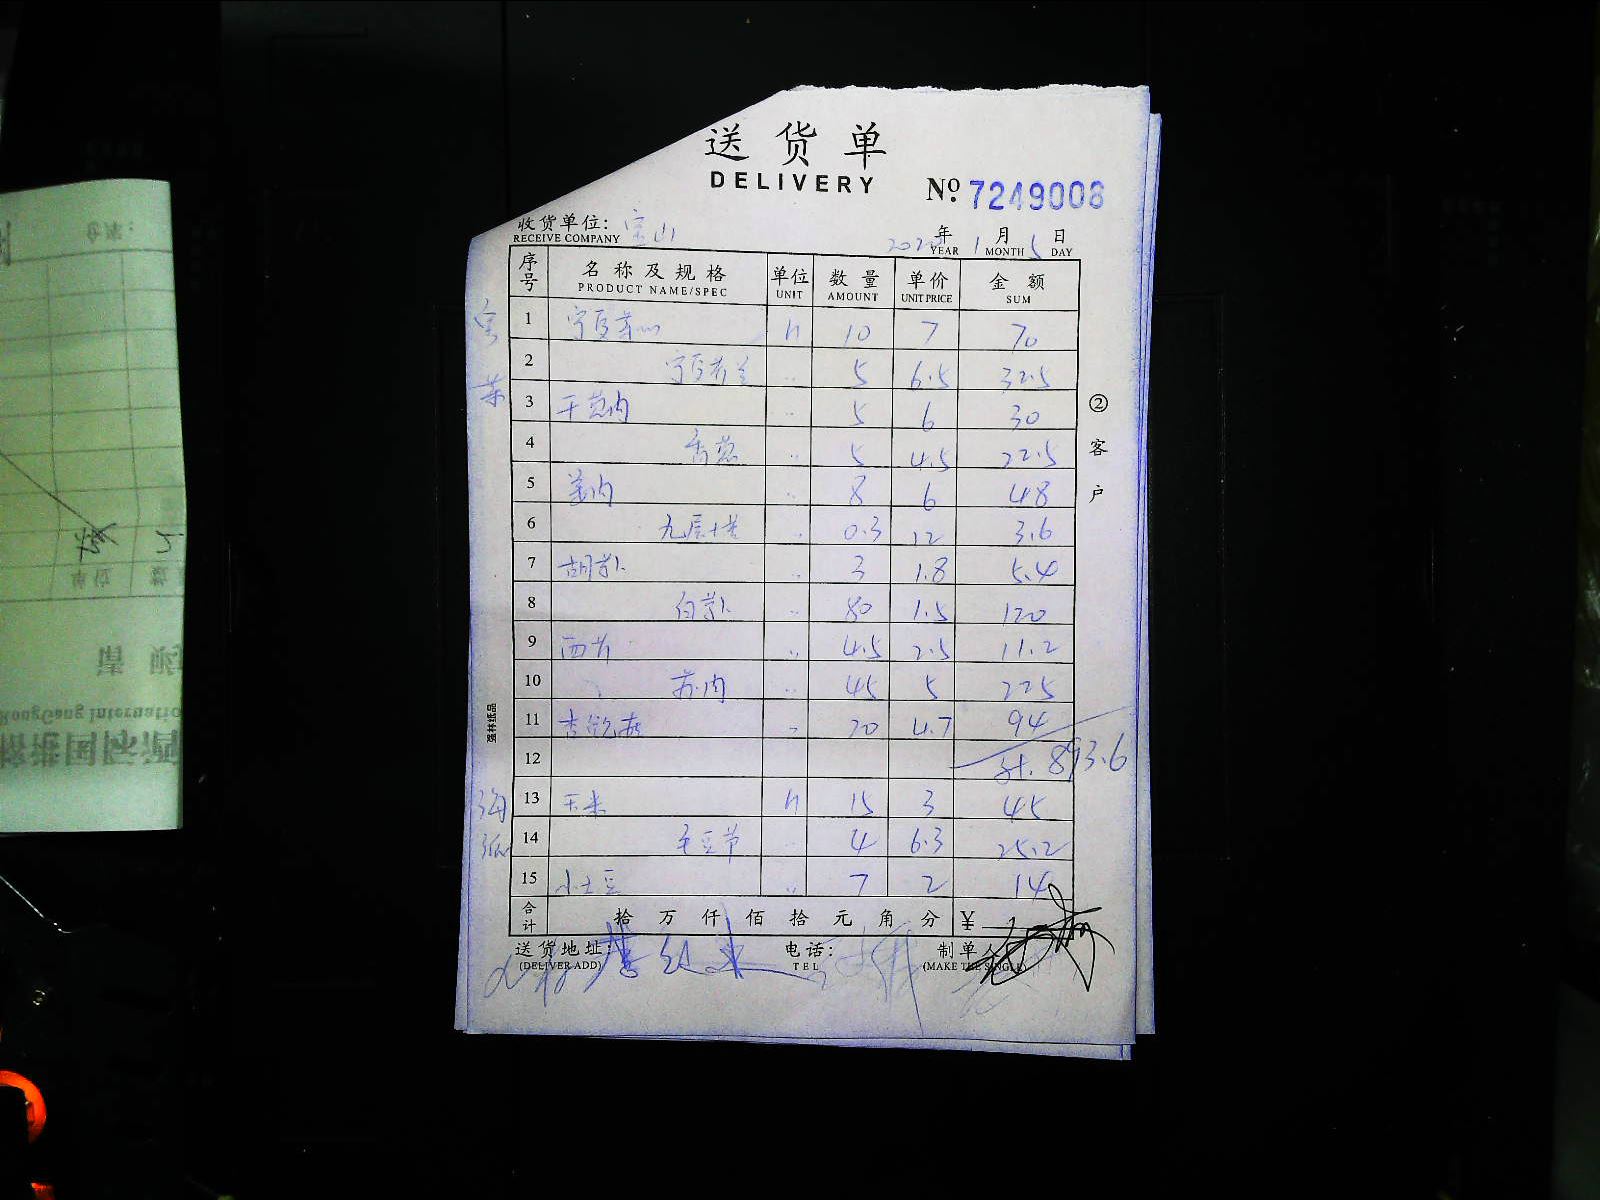 送货单
DELIVERY
No. 7249006
收货单位: 宝山
RECEIVE COMPANY
年 1 月 5 日
YEAR MONTH DAY
序号 名称及规格 单位 数量 单价 金额
PRODUCT NAME/SPEC UNIT AMOUNT UNIT PRICE SUM
1 宁夏菜心 斤 10 7 70
2 5 6.5 32.5
3 干葱肉 5 6 30
4 香葱 5 4.5 22.5
5 姜肉 8 6 48
6 九层塔 0.3 12 3.6
7 胡萝卜 3 1.8 5.4
8 白萝卜 80 1.5 120
9 西芹 4.5 2.5 11.2
10 45 5 225
11 20 4.7 94
12 893.6
13 玉米 斤 15 3 45
14 毛豆节 4 6.3 25.2
15 小土豆 7 2 14
合计 拾 万 仟 佰 拾 元 角 分 ¥
送货地址: 电话: 制单人
(DELIVER ADD) TEL (MAKE THE SINGLE)
②客户
强林纸品